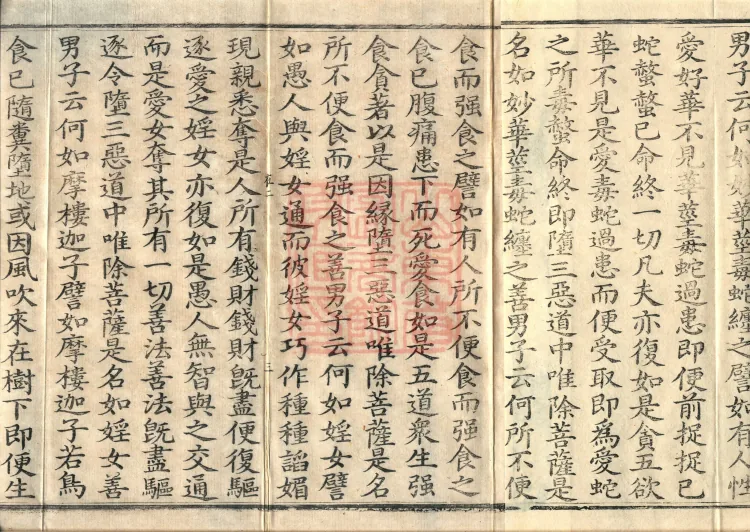 男子云何如妙華莖毒蛇纏之譬如有人性
愛好華不見華莖毒蛇過患即便前捉捉已
蛇螫螫已命終一切凡夫亦復如是貪五欲
華不見是愛毒蛇過患而便受取即爲愛蛇
之所毒螫命終即墮三惡道中唯除菩薩是
名如妙華莖毒蛇纏之善男子云何所不便
食而强食之譬如有人所不便食而强食之
食已腹痛患下而死愛食如是五道衆生强
食貪著以是因緣墮三惡道唯除菩薩是名
所不便食而强食之善男子云何如婬女譬
如愚人與婬女通而彼婬女巧作種種諂媚
現親悉奪是人所有錢財錢財旣盡便復驅
逐愛之婬女亦復如是愚人無智與之交通
而是愛女奪其所有一切善法善法旣盡驅
逐令墮三惡道中唯除菩薩是名如婬女善
男子云何如摩樓迦子譬如摩樓迦子若鳥
食已隨糞墮地或因風吹來在樹下即便生